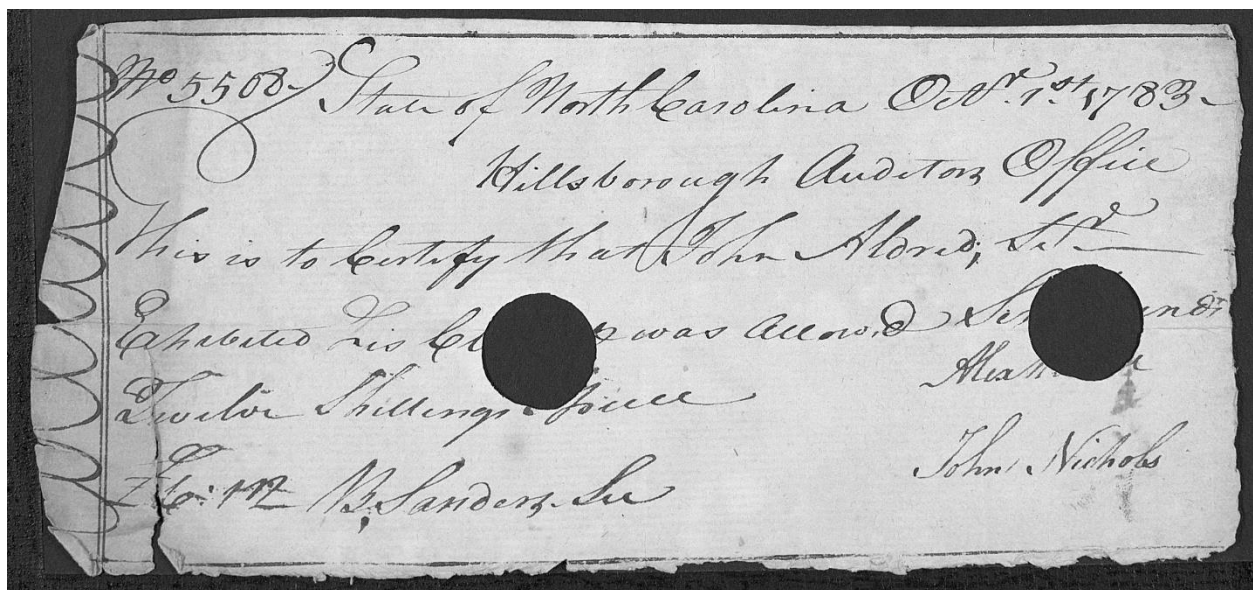 No 5508 State of North Carolina Octr. 1st 1783
Hillsborough Auditors Office
This is to Certify that John Aldred,
Exhibited his was Allowed
Twelve Shillings Specie
B, Sanders
John Nichols